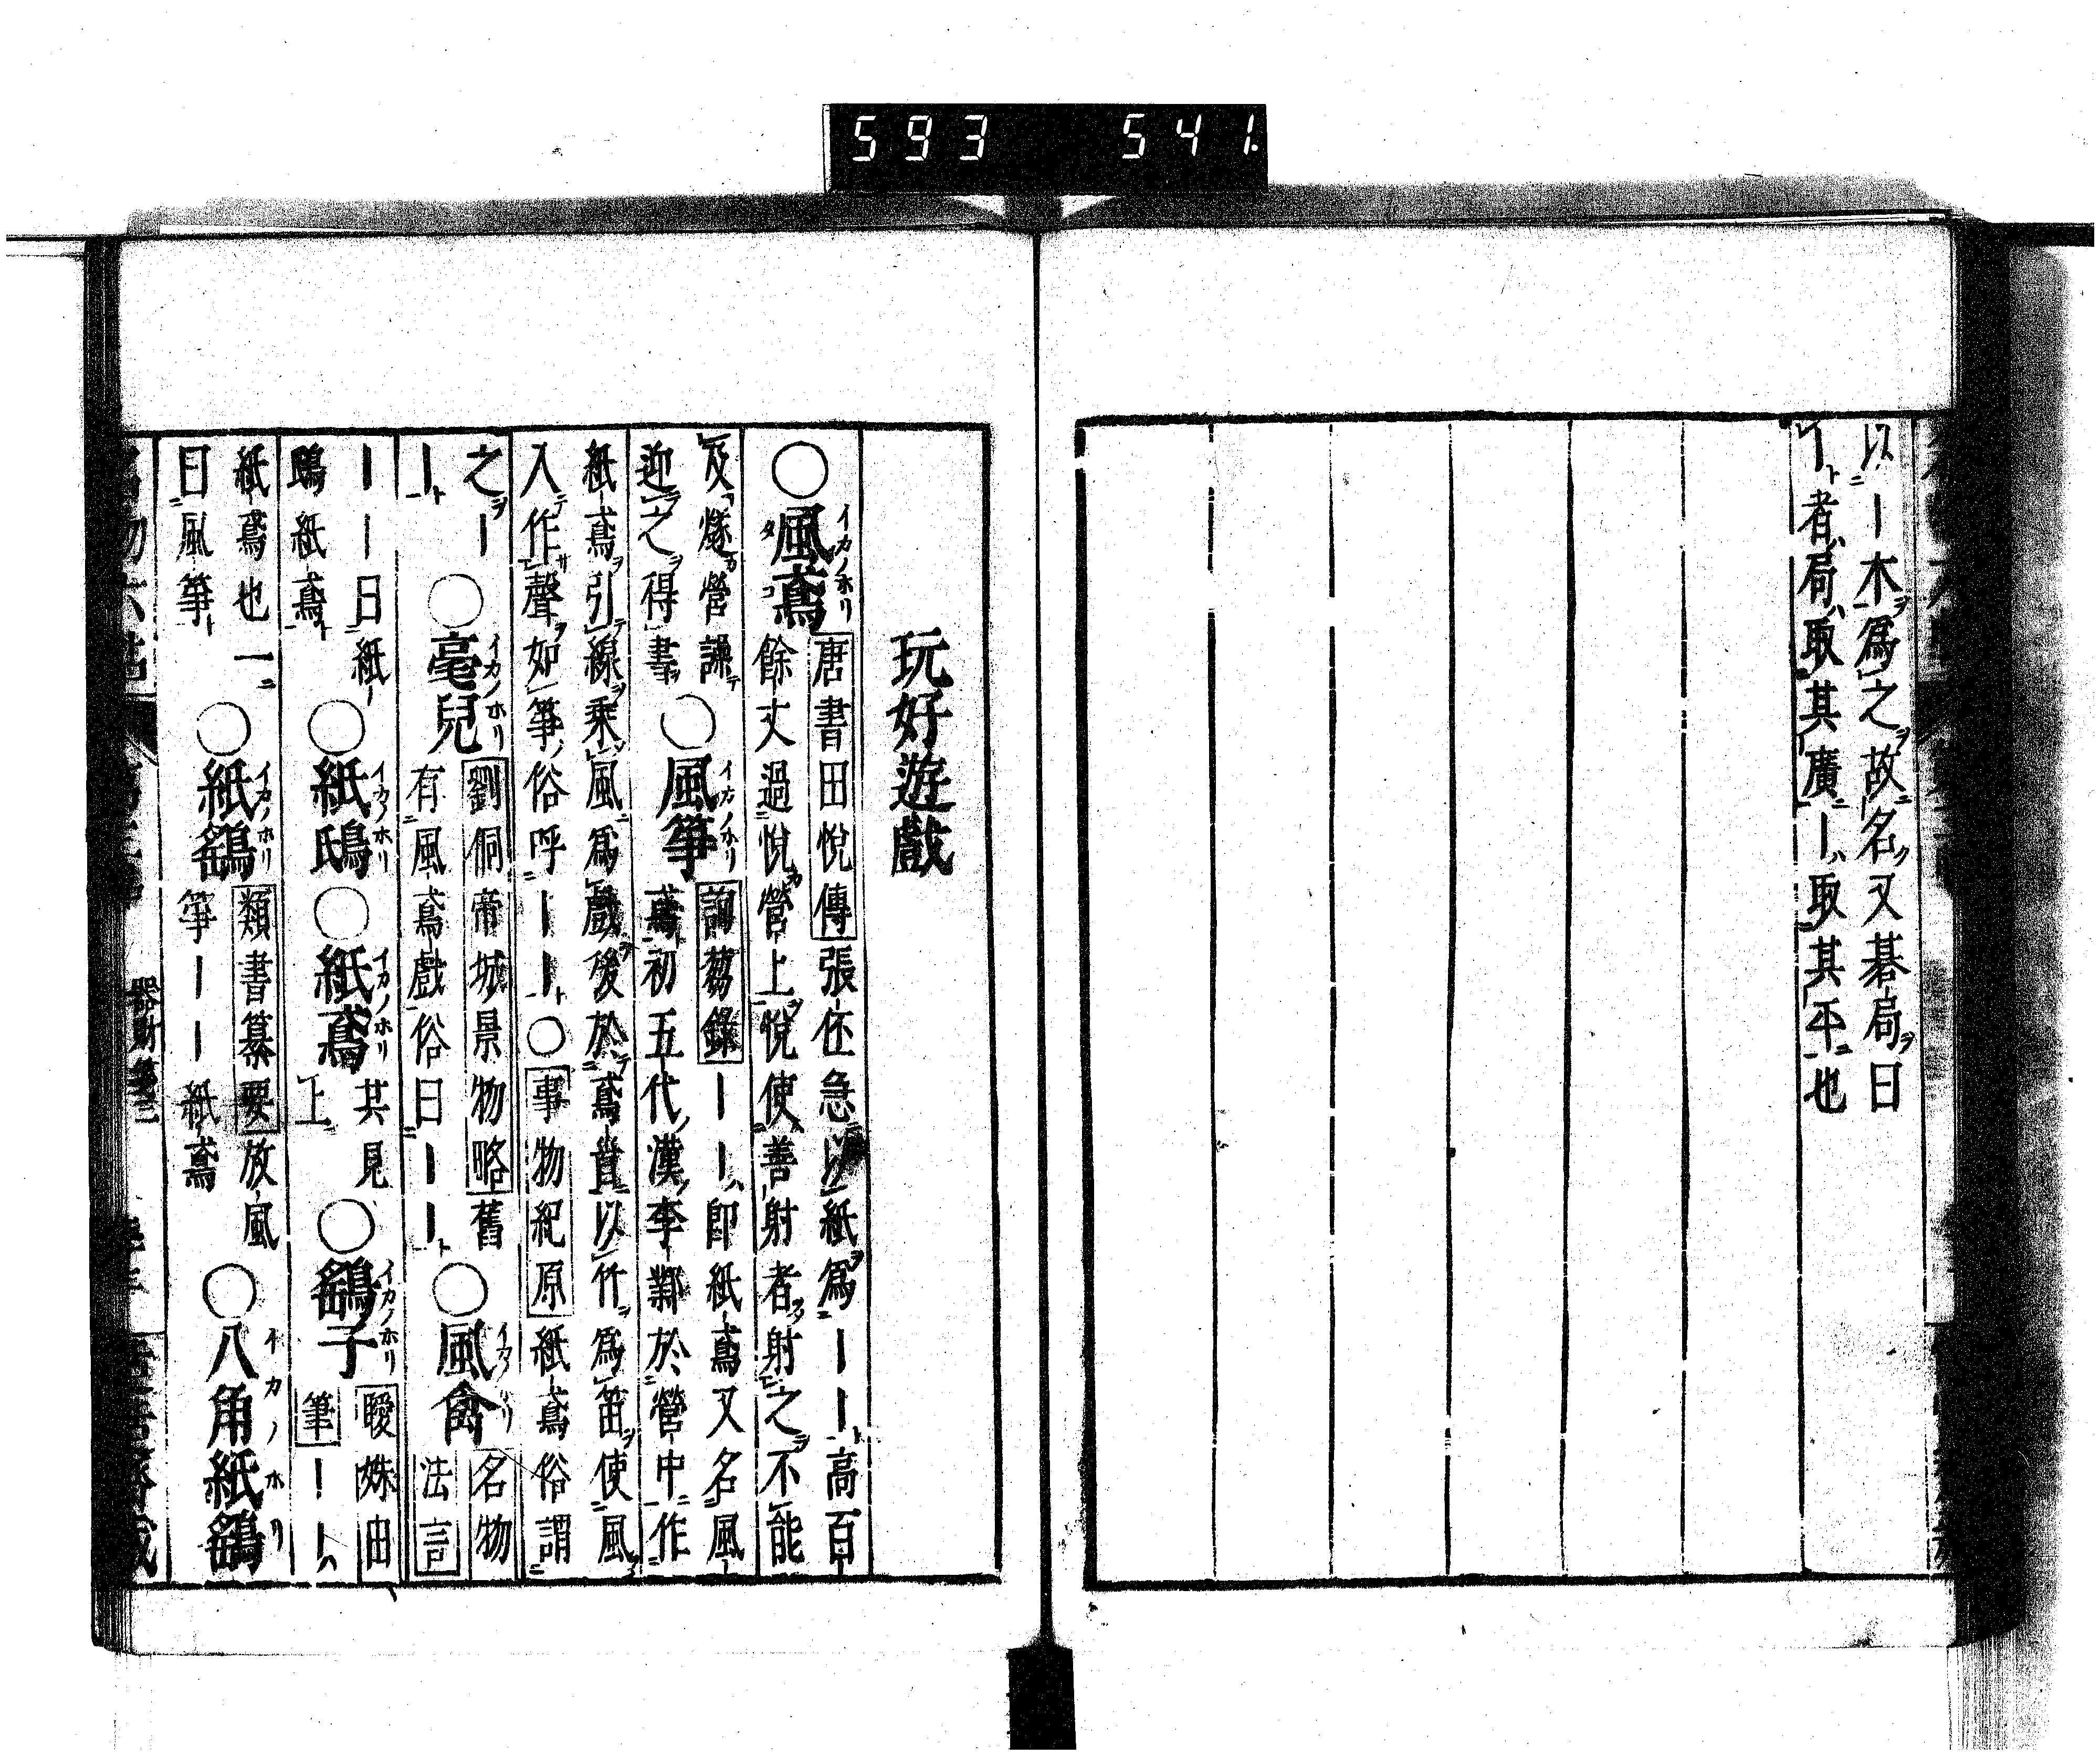 593 541.
以｜木爲之故名又碁局曰
｜者局取其廣｜取其平也
玩好遊戲
○風鳶 唐書田悅傳張伾急以紙爲｜｜高百
餘丈過悅營上悅使善射者射之不能
及燧營譟
迎之得書
○風箏 詢蒭錄｜｜卽紙鳶又名風
鳶初五代漢李鄴於營中作
紙鳶引線乘風爲戲後於鳶首以竹爲笛使風
入作聲如箏俗呼｜｜○事物紀原紙鳶俗謂
之｜
｜
○毫兒 劉侗帝城景物略舊
有風鳶戲俗曰｜｜
○風禽 名物
法言
｜｜曰紙
鴟紙鳶
○紙鴟
○紙鳶 其見
上
○鷂子 曖姝由
筆｜｜
紙鳶也一
曰風箏
○紙鷂 類書纂要放風
箏｜｜紙鳶
○八角紙鷂
器財